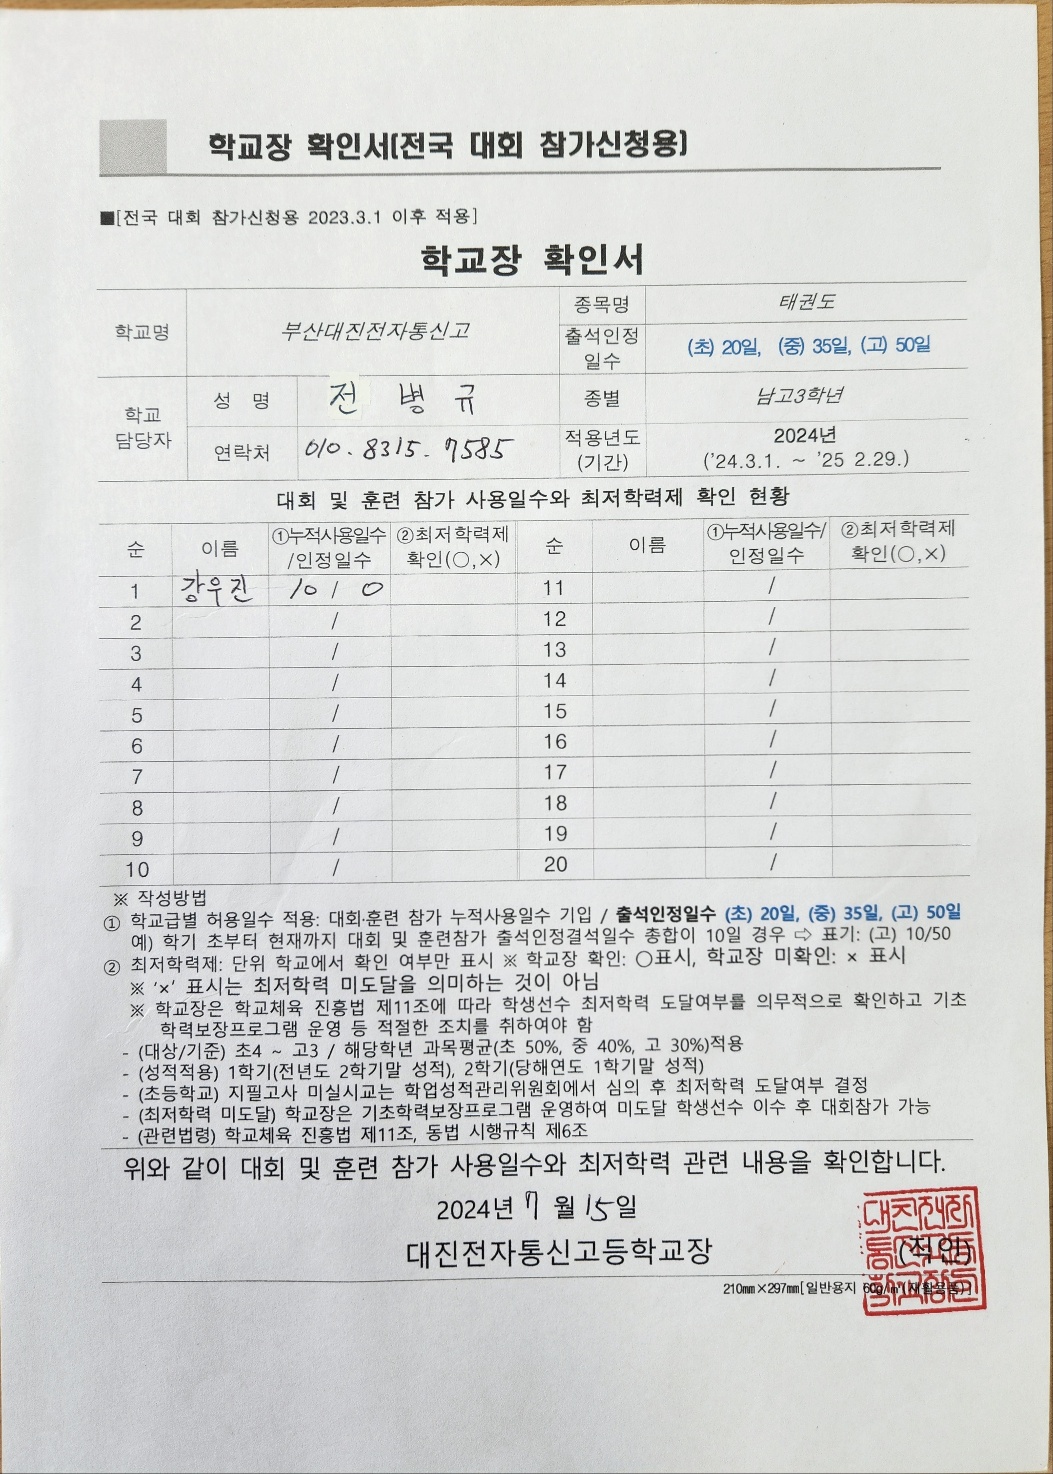 학교장 확인서(전국 대회 참가신청용)
■[전국 대회 참가신청용 2023.3.1 이후 적용]
학교장 확인서
학교명 부산대진전자통신고 종목명 태권도
출석인정 일수 (초) 20일, (중) 35일, (고) 50일
학교 담당자 성 명 전 병 규 종별 남고3학년
연락처 010-8315-7585 적용년도 (기간) 2024년 ('24.3.1. ~ '25 2.29.)
대회 및 훈련 참가 사용일수와 최저학력제 확인 현황
순 이름 ①누적사용일수/인정일수 ②최저학력제 확인(○,×) 순 이름 ①누적사용일수/인정일수 ②최저학력제 확인(○,×)
1 강우진 10 / 0 11 /
2 / 12 /
3 / 13 /
4 / 14 /
5 / 15 /
6 / 16 /
7 / 17 /
8 / 18 /
9 / 19 /
10 / 20 /
※ 작성방법
① 학교급별 허용일수 적용: 대회·훈련 참가 누적사용일수 기입 / 출석인정일수 (초) 20일, (중) 35일, (고) 50일
예) 학기 초부터 현재까지 대회 및 훈련참가 출석인정결석일수 총합이 10일 경우 ⇨ 표기: (고) 10/50
② 최저학력제: 단위 학교에서 확인 여부만 표시 ※ 학교장 확인: ○표시, 학교장 미확인: × 표시
※ '×' 표시는 최저학력 미도달을 의미하는 것이 아님
※ 학교장은 학교체육 진흥법 제11조에 따라 학생선수 최저학력 도달여부를 의무적으로 확인하고 기초
학력보장프로그램 운영 등 적절한 조치를 취하여야 함
- (대상/기준) 초4 ~ 고3 / 해당학년 과목평균(초 50%, 중 40%, 고 30%)적용
- (성적적용) 1학기(전년도 2학기말 성적), 2학기(당해연도 1학기말 성적)
- (초등학교) 지필고사 미실시교는 학업성적관리위원회에서 심의 후 최저학력 도달여부 결정
- (최저학력 미도달) 학교장은 기초학력보장프로그램 운영하여 미도달 학생선수 이수 후 대회참가 가능
- (관련법령) 학교체육 진흥법 제11조, 동법 시행규칙 제6조
위와 같이 대회 및 훈련 참가 사용일수와 최저학력 관련 내용을 확인합니다.
2024년 7 월 15일
대진전자통신고등학교장 (직인)
210mm×297mm[일반용지 60g/㎡(재활용품)]